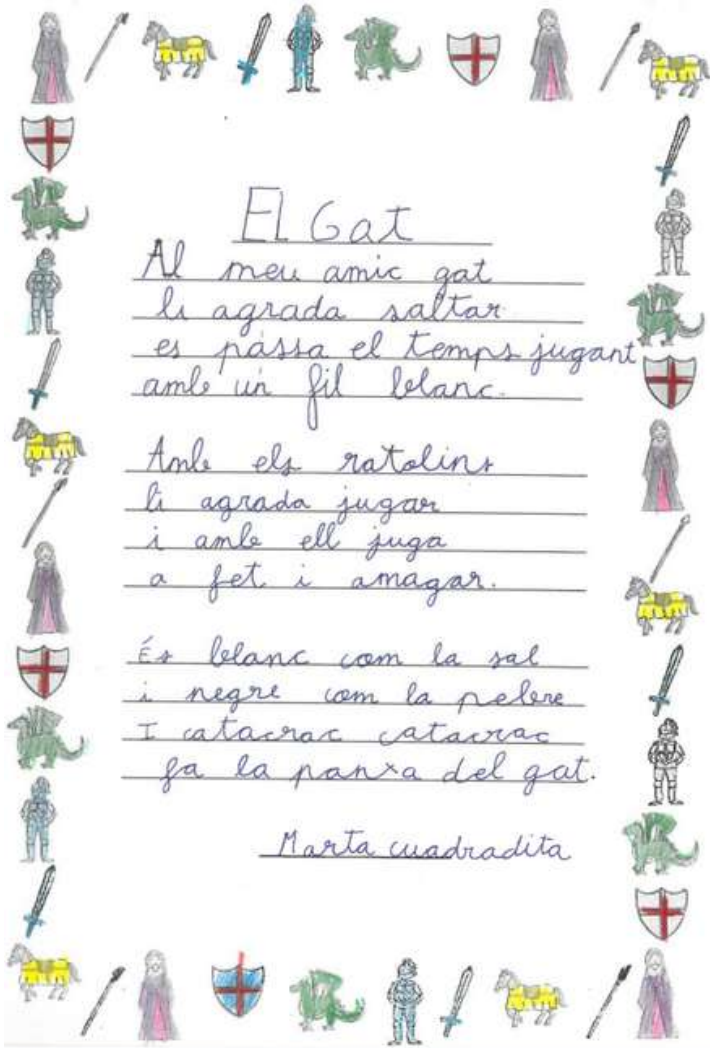 El Gat
Al meu amic gat
li agrada saltar
es passa el temps jugant
amb un fil blanc.
Amb els ratolins
li agrada jugar
i amb ell juga
a fet i amagar.
És blanc com la sal
i negre com la pebre
I catacrac catacrac
fa la panxa del gat.
Marta cuadradita